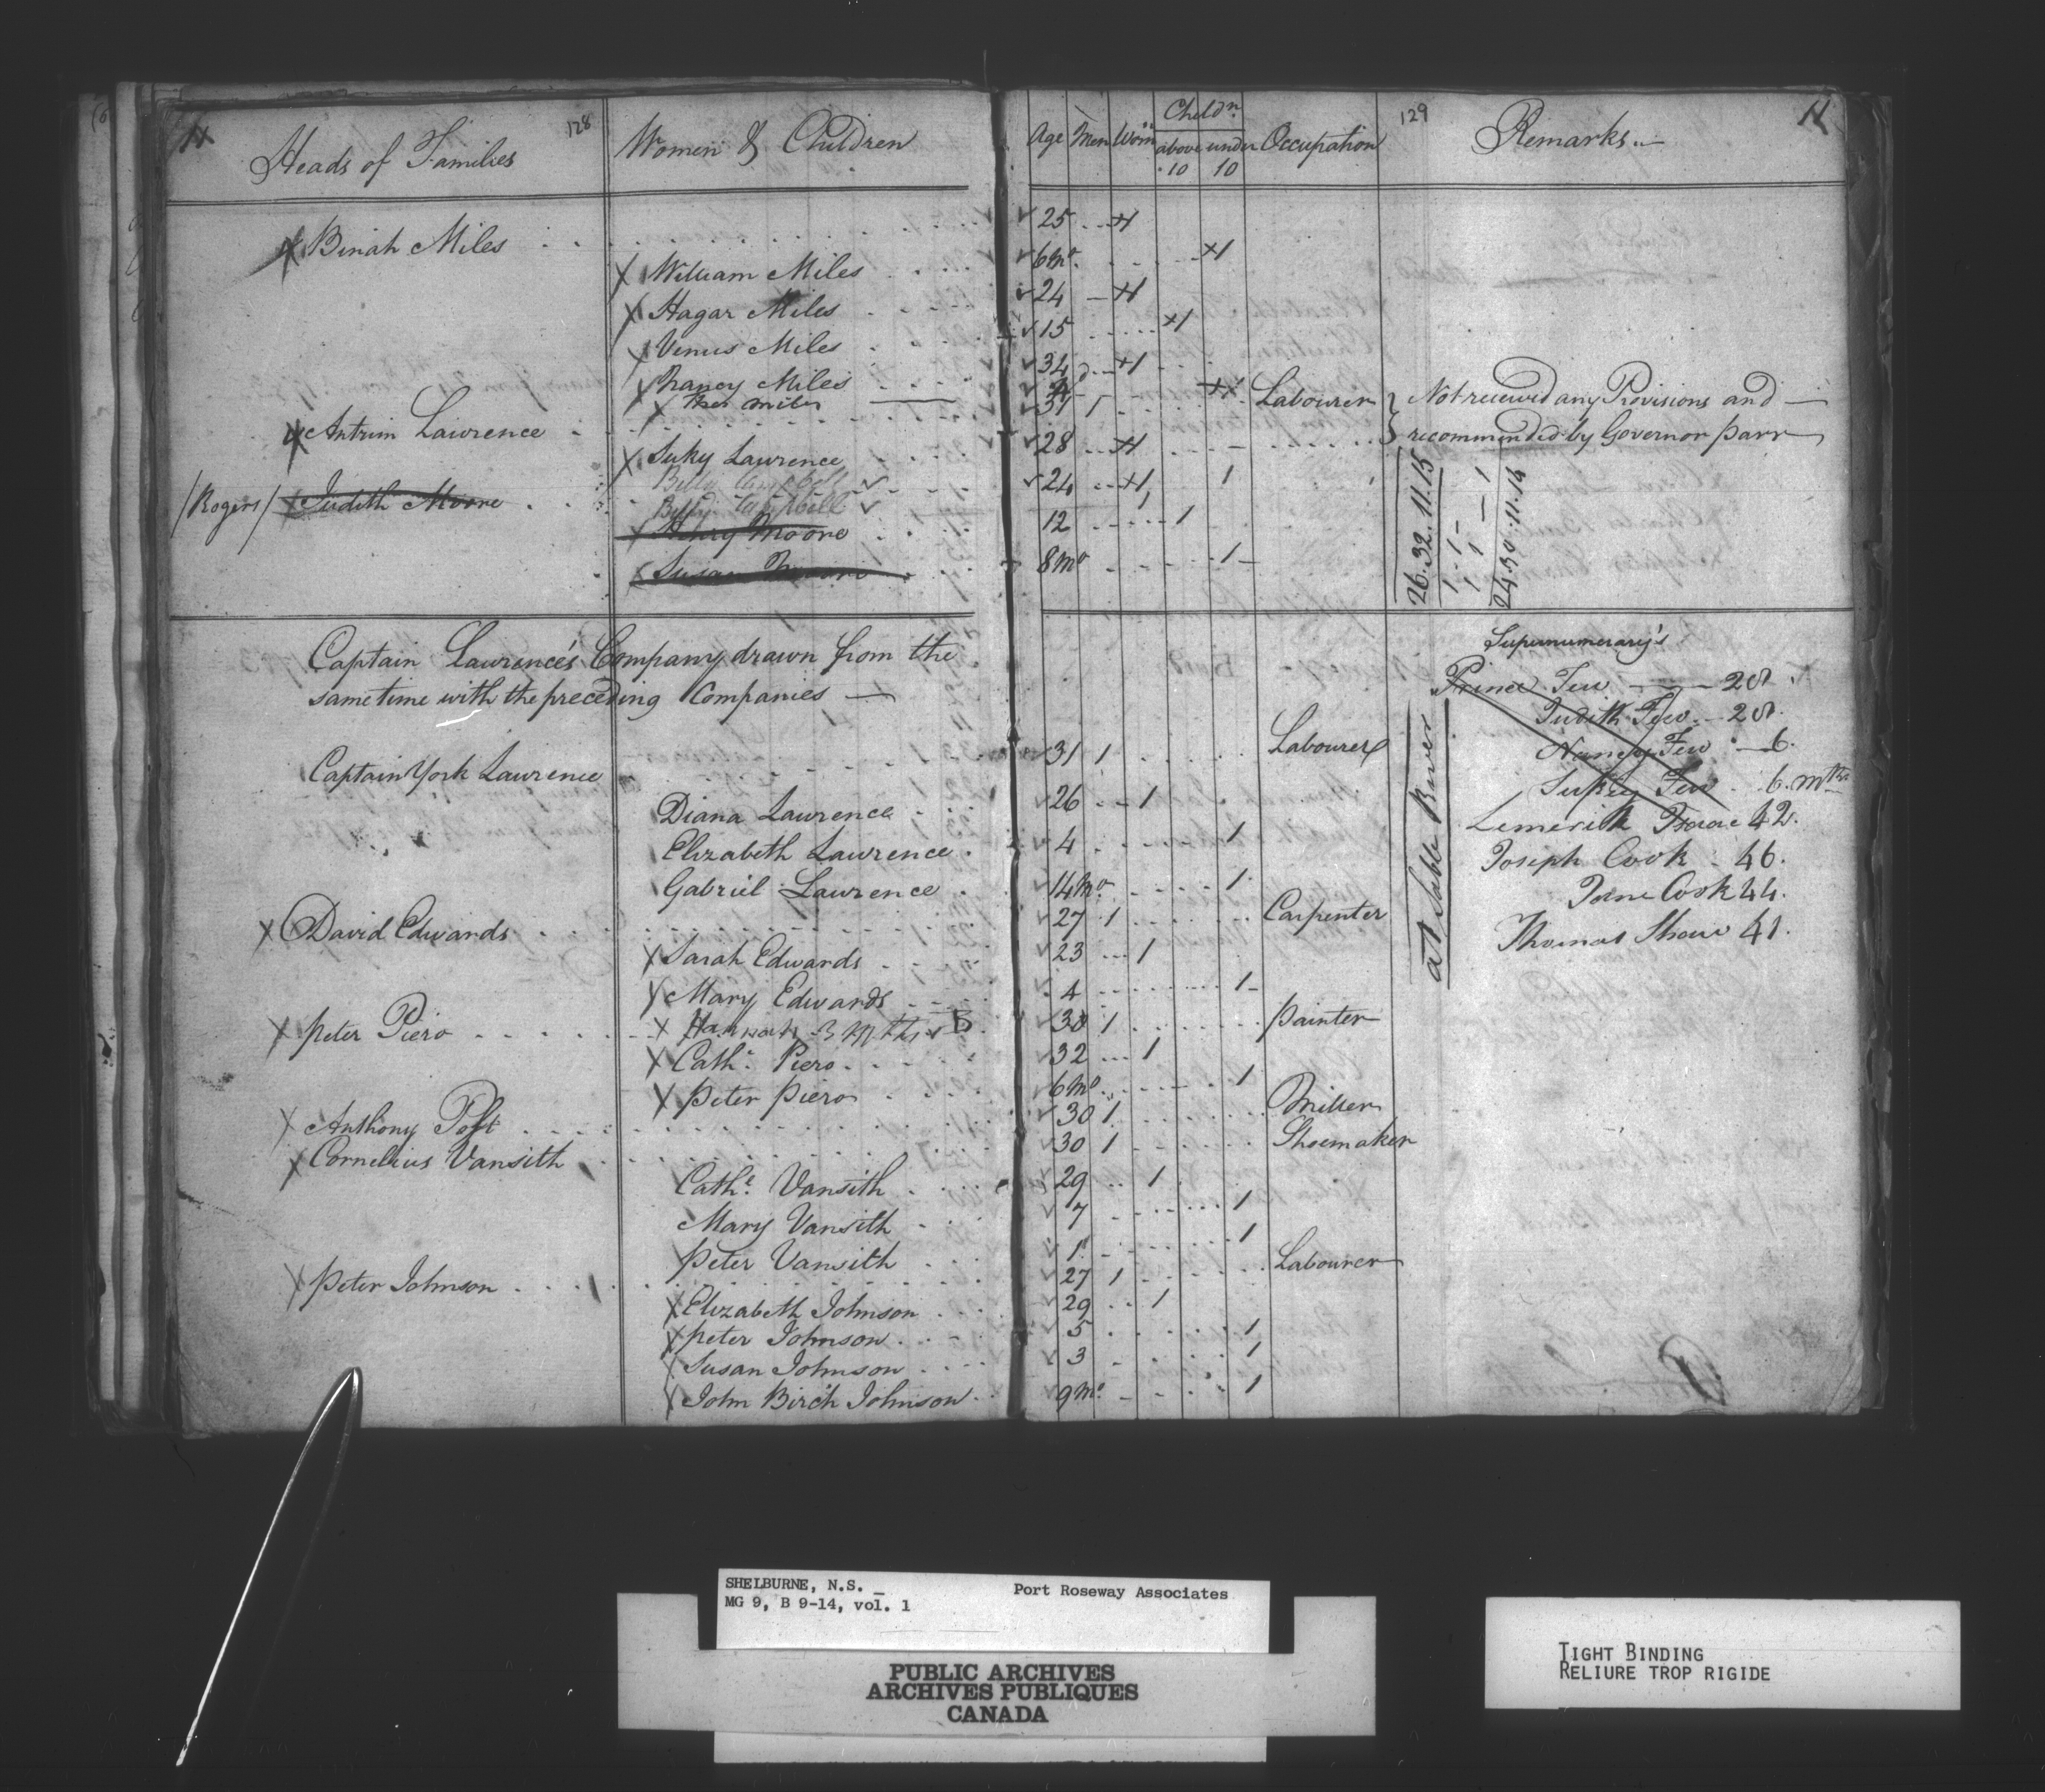 11 128 129 11
Heads of Families Women & Children Age Men Wom.n Child.n above 10 under 10 Occupation Remarks
X Binah Miles 25 1
X William Miles 6 Mo. 1
X Hagar Miles 24 1
X Venus Miles 15 1
X Nancy Miles 34 1
X Miles 1
X Antrim Lawrence 31 1 Labourer } Not received any Provisions and
X Suky Lawrence 28 1 } recommended by Governor Parr
Betsy Campbell
/Rogers/ X Judith Moore 24 1 1
Campbell
X Henry Moore 12 1
X Susan Moore 8 Mo 1
26.32.11.15
24.30.11.14
Captain Lawrence's Company drawn from the
same time with the preceding Companies
Captain York Lawrence 31 1 Labourer
Diana Lawrence 26 1
Elizabeth Lawrence 4 1
Gabriel Lawrence 14 Mo. 1
X David Edwards 27 1 Carpenter
X Sarah Edwards 23 1
X Mary Edwards 4 1
X Hannah 3 Mths B
X Peter Piero 30 1 Painter
X Cath.e Piero 32 1
X Peter Piero 6 Mo 1
X Anthony Post 30 1 Miller
X Cornelius Vansith 30 1 Shoemaker
Cath.e Vansith 29 1
Mary Vansith 7 1
Peter Vansith 1 1
X Peter Johnson 27 1 Labourer
X Elizabeth Johnson 29 1
X Peter Johnson 5 1
X Susan Johnson 3 1
X John Birch Johnson 9 Mo. 1
Supernumerary's
Prince Few 28
Judith Few 28
Nancy Few 6.
Sukey Few 6. Mths
Limerick Isaac 42.
Joseph Cook 46.
Jane Cook 44.
Thomas Shaw 41.
at Sable River
SHELBURNE, N.S. _ Port Roseway Associates
MG 9, B 9-14, vol. 1
PUBLIC ARCHIVES
ARCHIVES PUBLIQUES
CANADA
TIGHT BINDING
RELIURE TROP RIGIDE